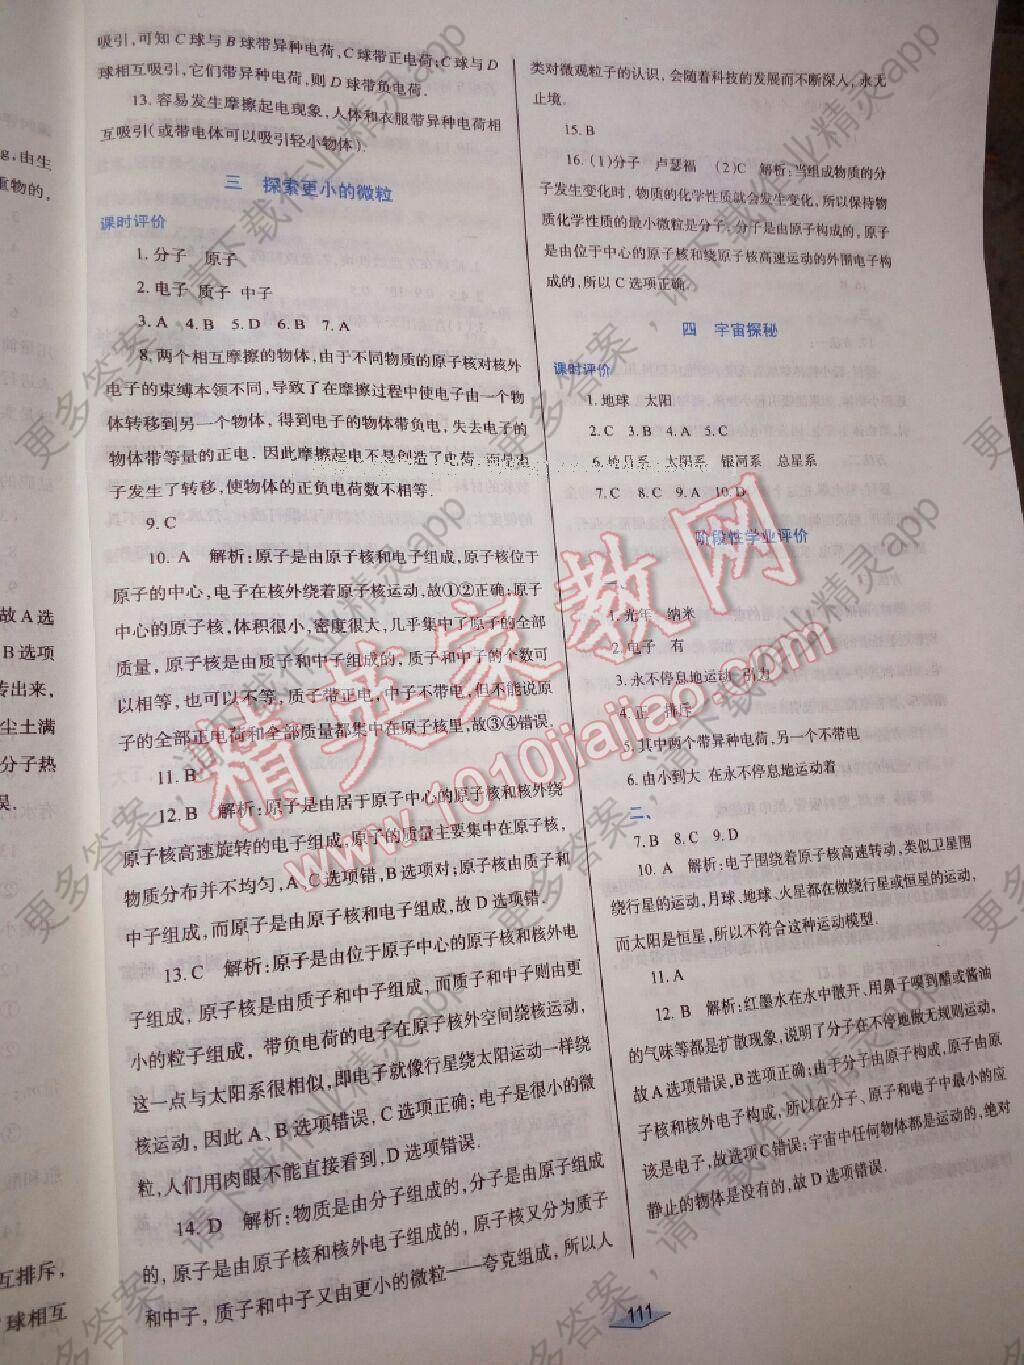 吸引,可知C球与B球带异种电荷,C球带正电荷;C球与D
球相互吸引,它们带异种电荷,则D球带负电荷.
13. 容易发生摩擦起电现象,人体和衣服带异种电荷相
互吸引(或带电体可以吸引轻小物体).
三 探索更小的微粒
课时评价
1. 分子 原子
2. 电子 质子 中子
3. A 4. B 5. D 6. B 7. A
8. 两个相互摩擦的物体,由于不同物质的原子核对核外
电子的束缚本领不同,导致了在摩擦过程中使电子由一个物
体转移到另一个物体,得到电子的物体带负电,失去电子的
物体带等量的正电. 因此摩擦起电不是创造了电荷,而是电
子发生了转移,使物体的正负电荷数不相等.
9. C
10. A 解析:原子是由原子核和电子组成,原子核位于
原子的中心,电子在核外绕着原子核运动,故①②正确;原子
中心的原子核,体积很小,密度很大,几乎集中了原子的全部
质量,原子核是由质子和中子组成的,质子和中子的个数可
以相等,也可以不等,质子带正电,中子不带电,但不能说原
子的全部正电荷和全部质量都集中在原子核里,故③④错误.
11. B
12. B 解析:原子是由居于原子中心的原子核和核外绕
原子核高速旋转的电子组成,原子的质量主要集中在原子核,
物质分布并不均匀,A、C选项错,B选项对;原子核由质子和
中子组成,而原子是由原子核和电子组成,故D选项错.
13. C 解析:原子是由位于原子中心的原子核和核外电
子组成,原子核是由质子和中子组成,而质子和中子则由更
小的粒子组成,带负电荷的电子在原子核外空间绕核运动,
这一点与太阳系很相似,即电子就像行星绕太阳运动一样绕
核运动,因此A、B选项错误,C选项正确;电子是很小的微
粒,人们用肉眼不能直接看到,D选项错误.
14. D 解析:物质是由分子组成的,分子是由原子组成
的,原子是由原子核和核外电子组成的,原子核又分为质子
和中子,质子和中子又由更小的微粒——夸克组成,所以人
类对微观粒子的认识,会随着科技的发展而不断深入,永无
止境.
15. B
16. (1)分子 卢瑟福 (2)C 解析:当组成物质的分
子发生变化时,物质的化学性质就会发生变化,所以保持物
质化学性质的最小微粒是分子.分子是由原子构成的,原子
是由位于中心的原子核和绕原子核高速运动的外围电子构
成的,所以C选项正确.
四 宇宙探秘
课时评价
1. 地球 太阳
2. C 3. B 4. A 5. C
6. 地月系 太阳系 银河系 总星系
7. C 8. C 9. A 10. D
阶段性学业评价
一、
1. 光年 纳米
2. 电子 有
3. 永不停息地运动 引力
4. 正 排斥
5. 其中两个带异种电荷,另一个不带电
6. 由小到大 在永不停息地运动着
二、
7. B 8. C 9. D
10. A 解析:电子围绕着原子核高速转动,类似卫星围
绕行星的运动,月球、地球、火星都在做绕行星或恒星的运动,
而太阳是恒星,所以不符合这种运动模型.
11. A
12. B 解析:红墨水在水中散开、用鼻子嗅到醋或酱油
的气味等都是扩散现象,说明了分子在不停地做无规则运动,
故A选项错误,B选项正确;由于分子由原子构成,原子由原
子核和核外电子构成,所以在分子、原子和电子中最小的应
该是电子,故选项C错误;宇宙中任何物体都是运动的,绝对
静止的物体是没有的,故D选项错误.
111
g,由生
重物的,
故A选
B选项
传出来,
尘土满
分子热
误.
互排斥,
球相互
精英家教网
www.1010jiajiao.com
更多答案,请下载作业精灵app